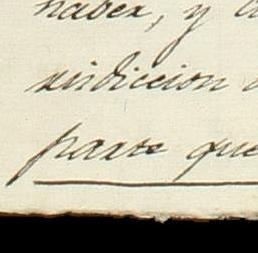 haber, y
xisdiccion
parte que